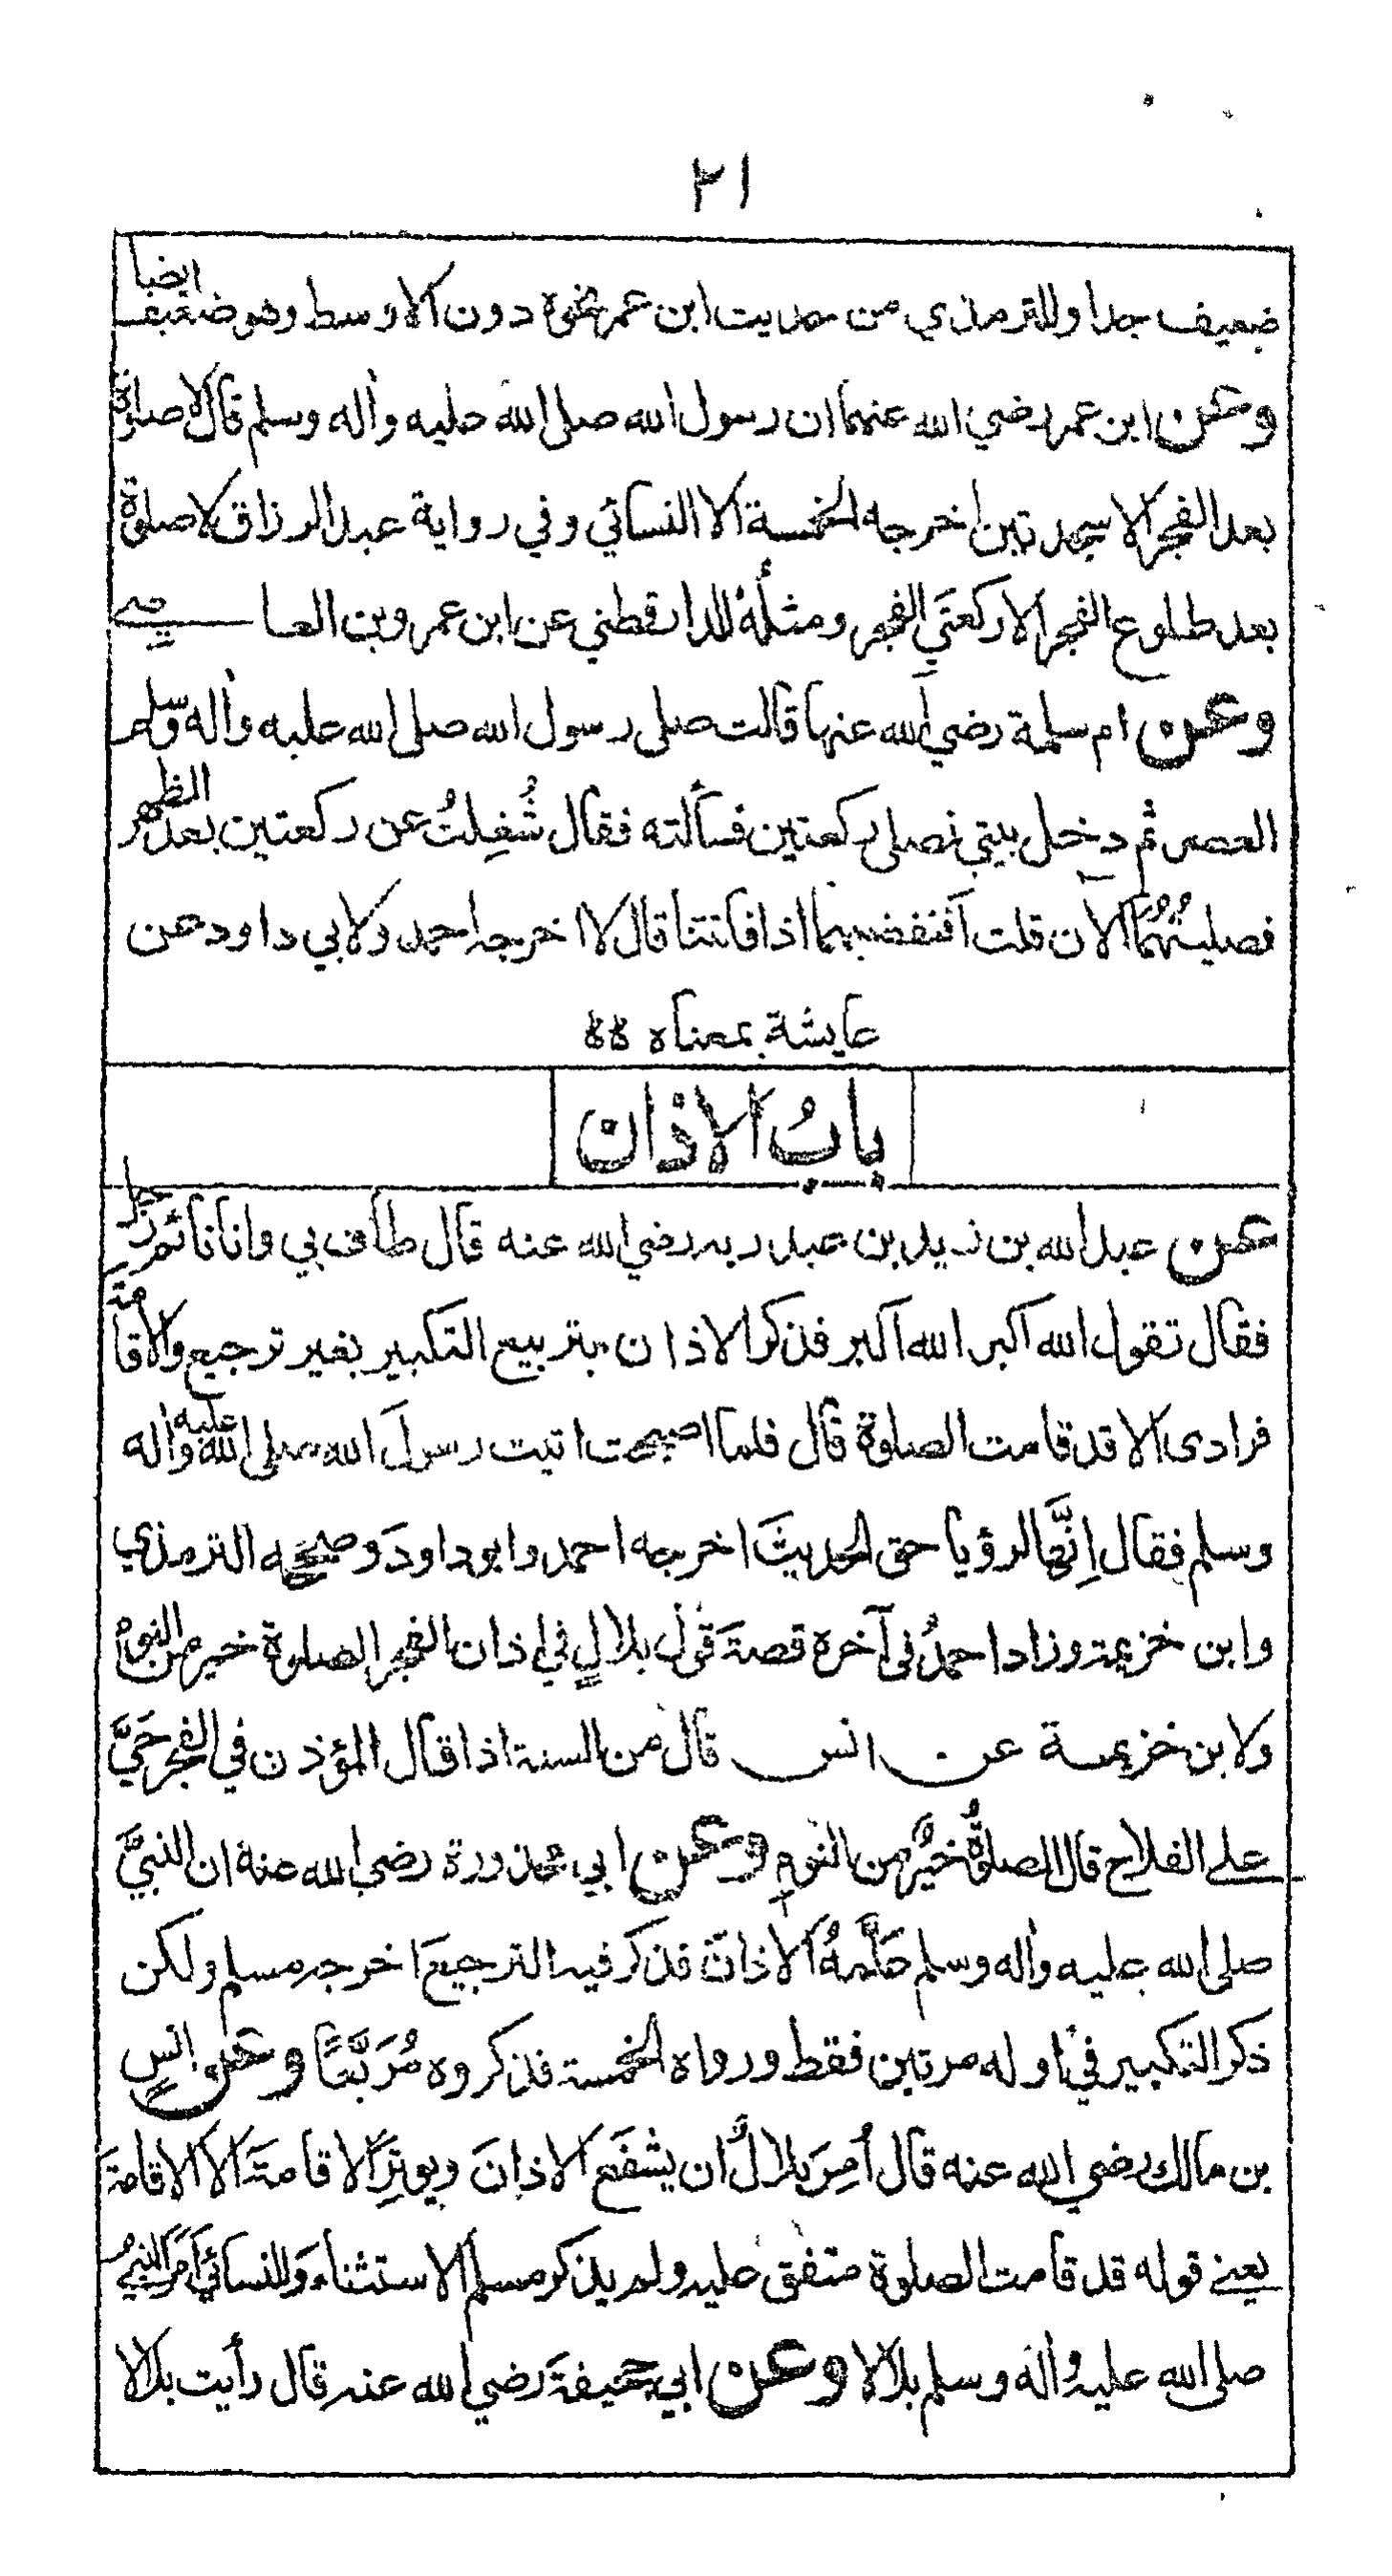 ٢١
ضعيف جدا وللترمذي من حديث ابن عمر نحوه دون الاوسط وهو ضعيف ايضا
وعن ابن عمر رضي الله عنهما ان رسول الله صلى الله عليه واله وسلم قال لا صلوة
بعد الفجر الا سجدتين اخرجه الخمسة الا النسائي وفي رواية عبد الرزاق لا صلوة
بعد طلوع الفجر الا ركعتَي الفجر ومثلُهُ للدارقطني عن ابن عمر وبن العاصے
وعن ام سلمة رضي الله عنها قالت صلى رسول الله صلى الله عليه واله وسلم
العصر ثم دخل بيتي فصلى ركعتين فسألته فقال شُغِلتُ عن ركعتين بعد الظهر
فصليتُهُمَا الان قلت أفنقضيهما اذا فاتتنا قال لا اخرجه احمد ولابي داود عن
عايشة بمعناه ۵۵
بابُ الاذان
عن عبد الله بن زيد بن عبد ربه رضي الله عنه قال طاف بي وانا نائم رجل
فقال تقول الله اكبر الله اكبر فذكر الاذان بتربيع التكبير بغير ترجيع والاقامة
فرادى الا قد قامت الصلوة قال فلما اصبحت اتيت رسولَ الله صلى الله عليه واله
وسلم فقال اِنَّها لرؤيا حق الحديثَ اخرجه احمد وابو داودَ وصححه الترمذي
وابن خزيمة وزاد احمدُ في آخره قصةَ قولِ بلالٍ في اذان الفجر الصلوة خير من النوم
ولابن خزيمة عن انس قال من السنة اذا قال المؤذن في الفجر حَيَّ
علے الفلاح قال الصلوةُ خيرٌ من النومِ وعن ابي محذورة رضي الله عنه ان النبيَّ
صلى الله عليه واله وسلم عَلَّمَهُ الاذانَ فذكر فيه الترجيعَ اخرجه مسلم ولكن
ذكر التكبير في اوله مرتين فقط ورواه الخمسة فذكروه مُرَبَّعًا وعن انسِ
بن مالك رضي الله عنه قال أُمِرَ بلالٌ ان يشفَع الاذانَ ويوتِرَ الاقامةَ الا الاقامةَ
يعنے قوله قد قامت الصلوة متفق عليه ولم يذكر مسلم الاستثناء وللنسائي اَمَرَ النبيُّ
صلى الله عليه واله وسلم بلالا وعن ابي جحيفةَ رضي الله عنه قال رأيت بلالا